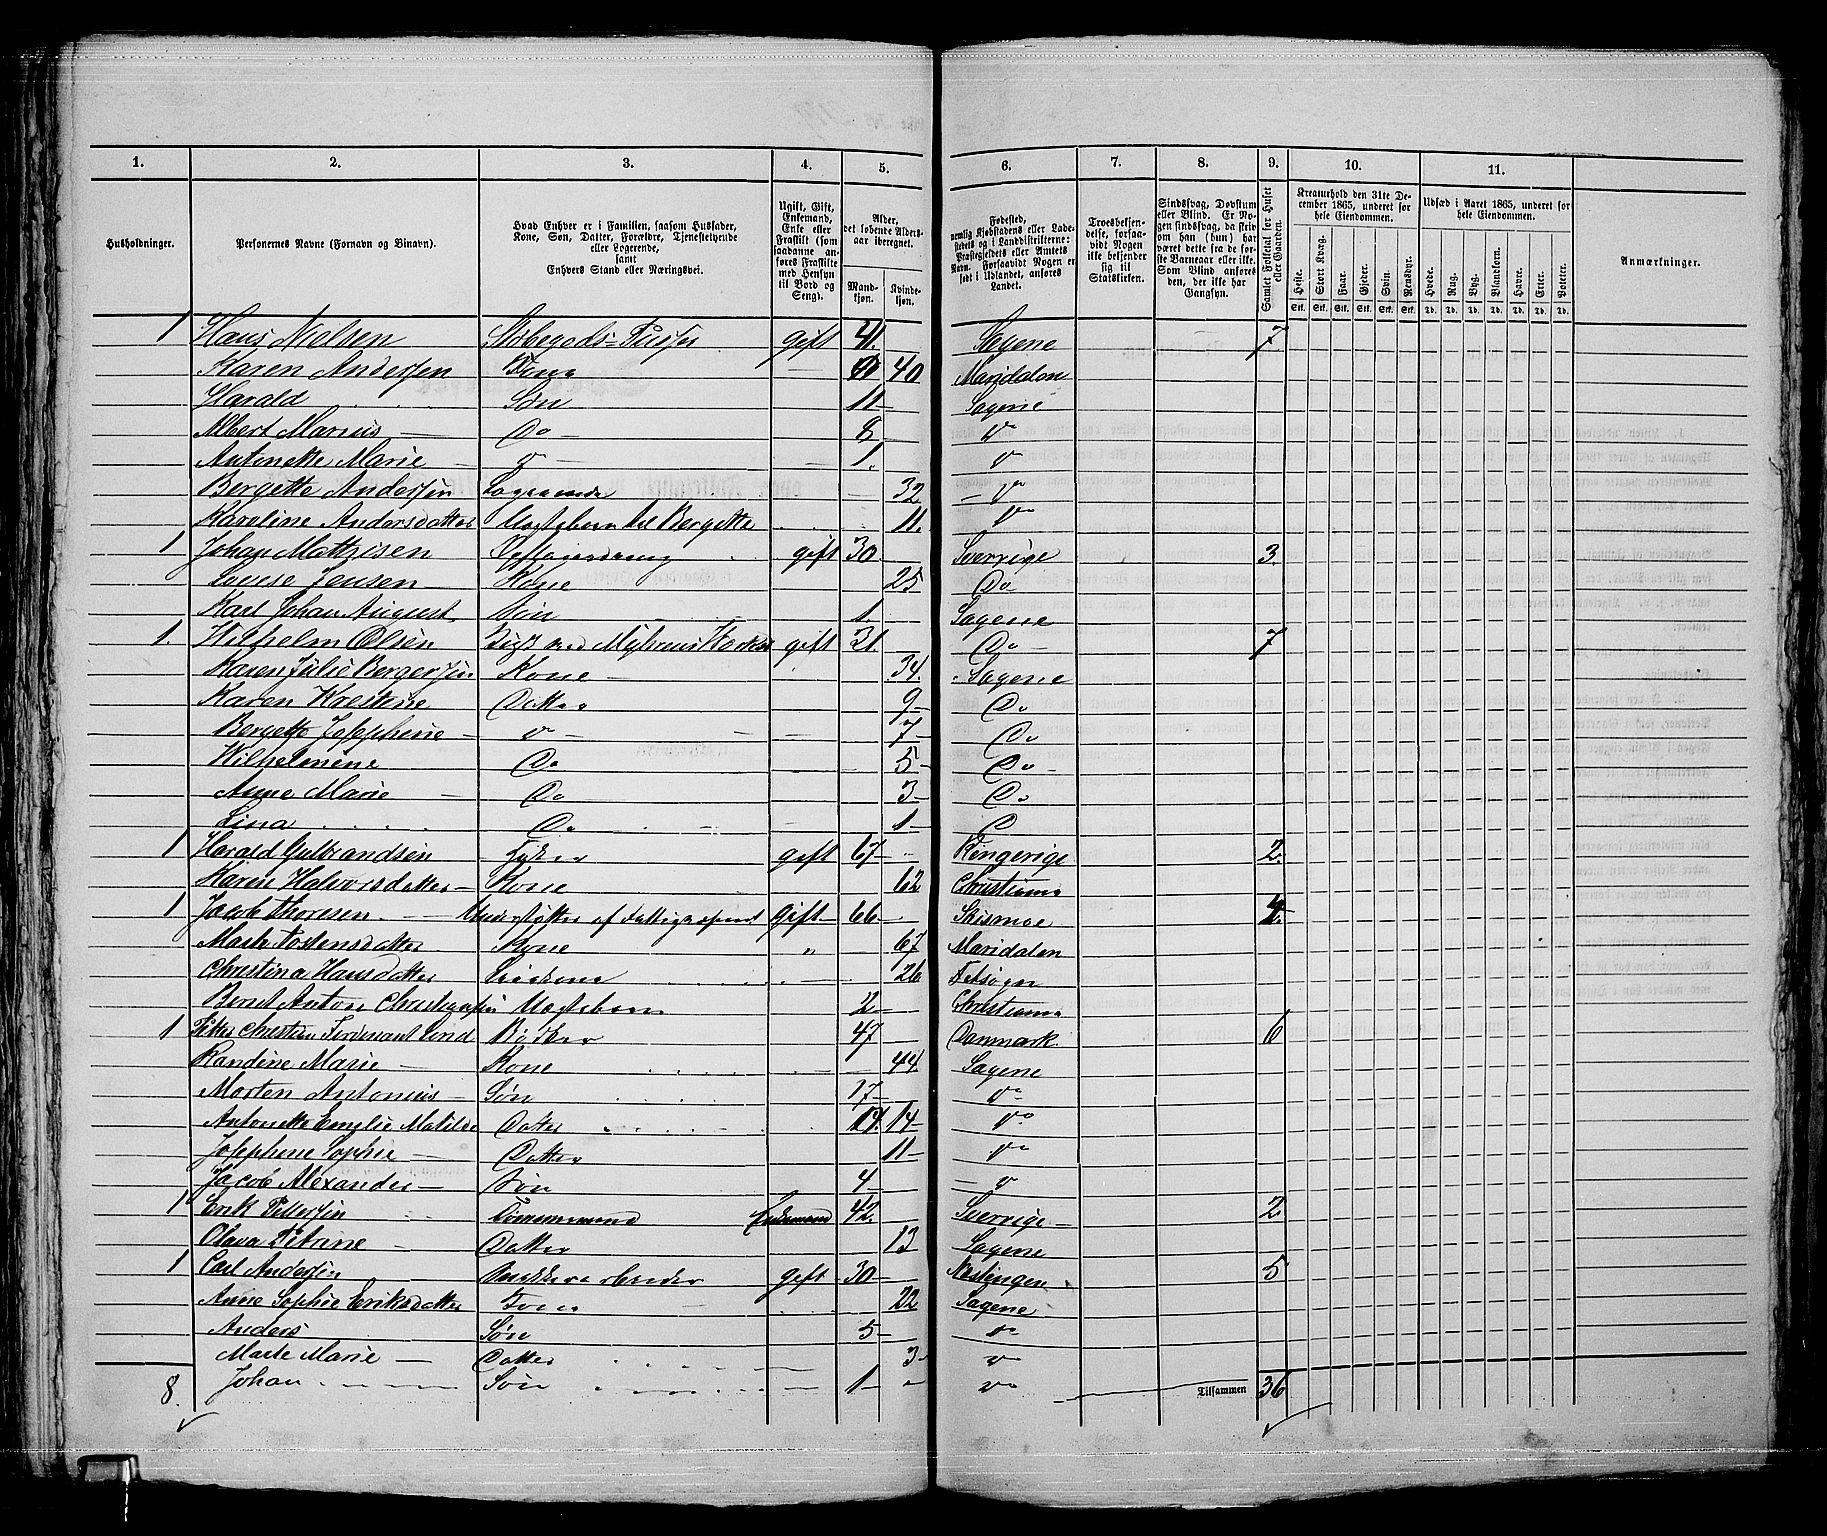 1. 2. 3. 4. 5. 6. 7. 8. 9. 10. 11.
Husholdninger.
Personernes Navne (Fornavn og Binavn).
Hvad Enhver er i Familien, saasom Husfader, Kone, Søn, Datter, Forældre, Tjenestetyende eller Logerende, samt Enhvers Stand eller Næringsvei.
Ugift, Gift, Enkemand, Enke eller Fraskilt (som saadanne anføres Fraskilte med Hensyn til Bord og Seng).
Alder, det løbende Aldersaar iberegnet.
Mandkjøn. Kvindekjøn.
Fødested, nemlig Kjøbstadens eller Ladestedets og i Landdistrikterne: Præstegjeldets eller Amtets Navn. Forsaavidt Nogen er født i Udlandet, anføres Landet.
Troesbekjendelse, forsaavidt Nogen ikke bekjender sig til Statskirken.
Sindssvag, Døvstum eller Blind. Er Nogen sindssvag, da skriv om han (hun) har været dette fra de første Barneaar eller ikke. Som Blind anføres den, der ikke har Gangsyn.
Samlet Folketal for Huset eller Gaarden.
Kreaturhold den 31te December 1865, underet for hele Eiendommen.
Heste. Stort Kvæg. Faar. Gjeder. Svin. Rensdyr.
Udsæd i Aaret 1865, underet for hele Eiendommen.
Hvede. Rug. Byg. Blandkorn. Havre. Erter. Poteter.
Anmærkninger.
Stk. Stk. Stk. Stk. Stk. Stk. Td. Td. Td. Td. Td. Td. Td.
1 Hans Nielsen gift 41. Sagene 7
Karen Andersen Kone 40 Maridalen
Harald Søn 11 Sagene
Albert Marius Do 8 Do
Antonette Marie Do 1. Do
Bergette Andersen Logerende 32 Do
Karoline Andersdatter Uægtebarn til Bergette 11. Do
1 Johan Mathisen gift 30 Sverrige 3.
Louise Jensen Kone 25 Do
Karl Johan August Søn 1 Sagene
1. Wilhelm Olsen gift 31 Do 7
Karen Julie Bergersen Kone 34. Sagene
Karen Kristine Datter 9 Do
Bergette Josephine Do 7 Do
Wilhelmine Do 5 Do
Anne Marie Do 3 Do
Lina Do 1 Do
1 Harald Gulbrandsen gift 67 Ringerige 2
Karen Halvorsdatter Kone 62 Christiania
1 Jacob Thoresen Understøttes af Fattigvæsenet gift 66 4.
Marte Tostensdatter Kone " 67 Maridalen
Christina Hansdatter 26 Fetsogn
Bernt Anton Christiansen Uægtebarn 2 Christiania
1 Peter Christian Ferdenant Lind Bødker 47 Danmark 6
Randine Marie Kone 44 Sagene
Morten Antonius Søn 17 Do
Antonette Emelie Matilde Datter 14 Do
Josephine Sophie Datter 11 Do
Jacob Alexander Søn 4 Do
1 Erik Pettersen Tømmermand Enkemand 42. Sverrige 2
Olava Petrine Datter 13 Sagene
1 Carl Andersen gift 30 5
Anne Sophie Eriksdatter Kone 22 Sagene
Anders Søn 5 Do
Marte Marie Datter 3 Do
8. Johan Søn 1 Do Tilsammen 36